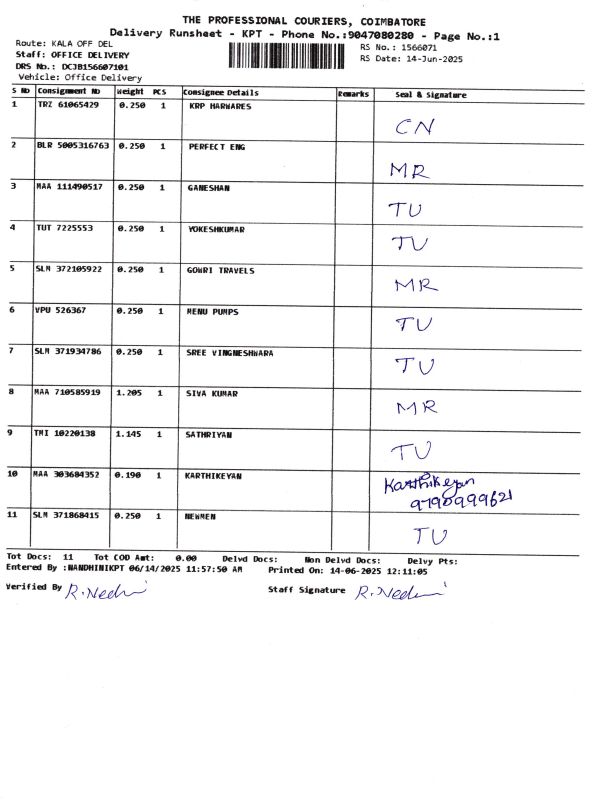 THE PROFESSIONAL COURIERS, COIMBATORE
Delivery Runsheet - KPT - Phone No.:9047080280 - Page No.:1
Route: KALA OFF DEL RS No.: 1566071
Staff: OFFICE DELIVERY RS Date: 14-Jun-2025
DRS No.: DCJB156607101
Vehicle: Office Delivery
S No Consignment No Weight PCS Consignee Details Remarks Seal & Signature
1 TRZ 61065429 0.250 1 KRP HARWARES CN
2 BLR 5005316763 0.250 1 PERFECT ENG MR
3 MAA 111490517 0.250 1 GANESHAN TU
4 TUT 7225553 0.250 1 YOKESHKUMAR TU
5 SLM 372105922 0.250 1 GOWRI TRAVELS MR
6 VPU 526367 0.250 1 MENU PUMPS TU
7 SLM 371934786 0.250 1 SREE VINGNESHWARA TU
8 MAA 710585919 1.205 1 SIVA KUMAR MR
9 TMI 10220138 1.145 1 SATHRIYAN TU
10 MAA 303684352 0.190 1 KARTHIKEYAN Karthikeyan
9790999621
11 SLM 371868415 0.250 1 NEWMEN TU
Tot Docs: 11 Tot COD Amt: 0.00 Delvd Docs: Non Delvd Docs: Delvy Pts:
Entered By :NANDHINIKPT 06/14/2025 11:57:50 AM Printed On: 14-06-2025 12:11:05
Verified By Staff Signature